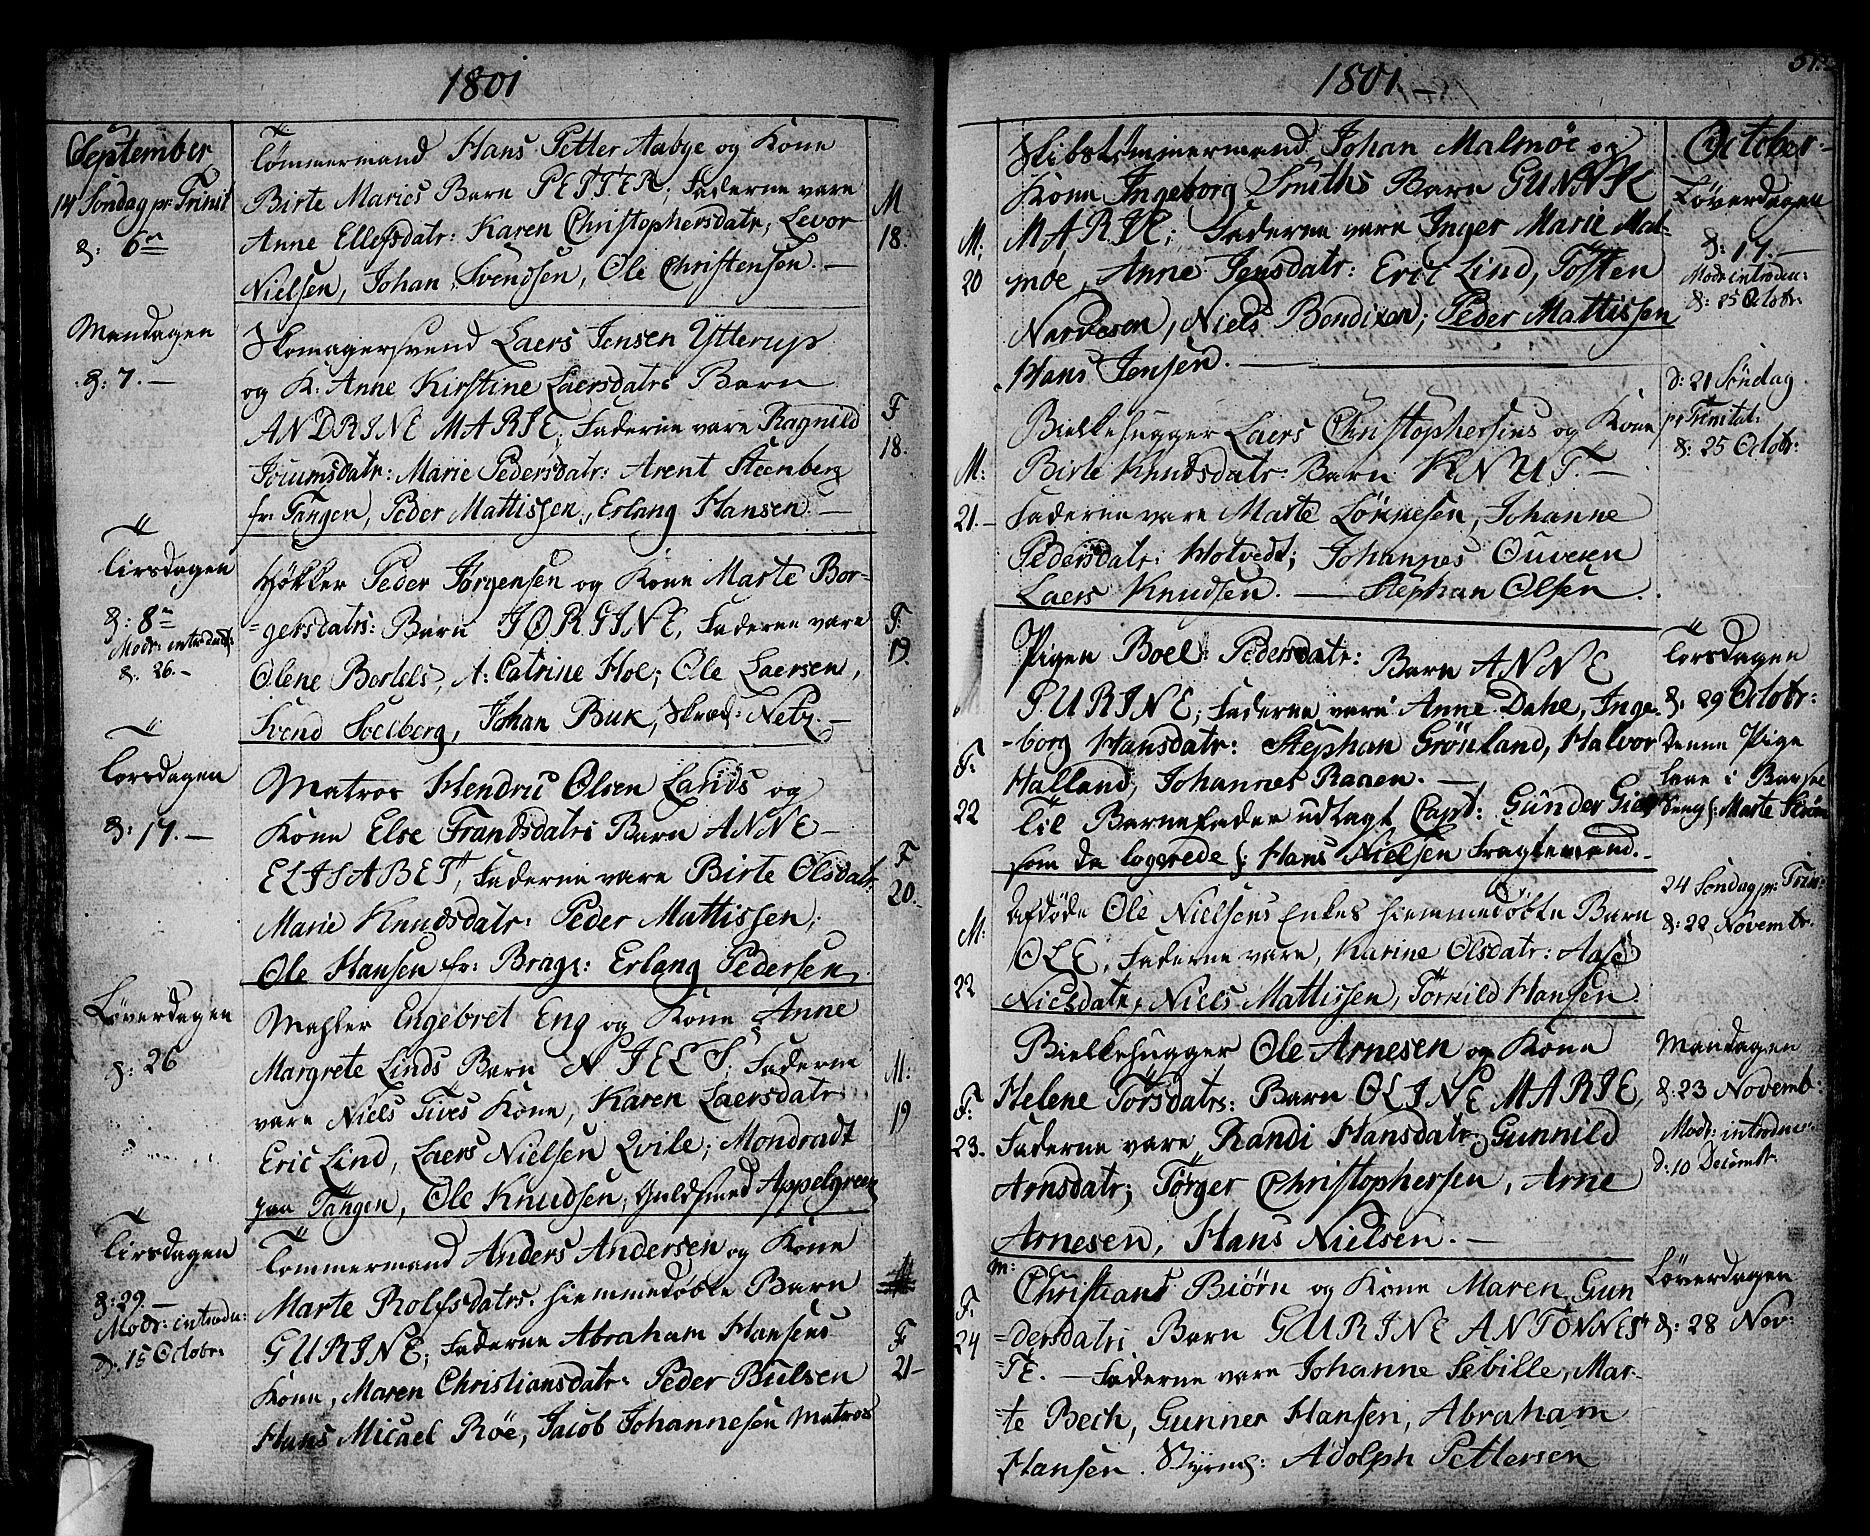 1801
September
14 Søndag pr: Trinit
d: 6te
Tømmermand Hans Petter Aabye og Kone
Birte Maries Barn PETTER; Faderne vare
Anne Ellefsdatr: Karen Christophersdatr; Levor
Nielsen, Johan Svendsen, Ole Christensen. —
M
18.
Mandagen
d: 7. —
Skomagersvend Laers Jensen Ytterup
og K. Anne Kirstine Laersdatrs Barn
ANDRINE MARIE; Faderne vare Ragnild
Jorumsdatr: Marie Pedersdatr: Arent Steenberg
fr: Tangen, Peder Mattissen, Erlang Hansen. —
F
18.
Tirsdagen
d: 8de
Modr: introduc:
d: 26. —
Høkker Peder Jørgensen og Kone Marte Bor-
=gersdatrs: Barn JØRGINE, Faderne vare
Olene Bertels, A: Catrine Hoe; Ole Laersen,
Svend Soelberg, Johan Buk, Skræd: Netz. —
F.
19.
Torsdagen
d: 17. —
Matros Hendric Olsen Lands og
Kone Else Frandsdatrs Barn ANNE
ELISABET, Faderne vare Birte Olsdatr:
Marie Knudsdatr: Peder Mattissen,
Ole Hansen fr: Brag: Erlang Pedersen.
F
20.
Løverdagen
d: 26
Mahler Engebret Eng og Kone Anne
Margrete Linds Barn NIELS; Faderne
vare Niels Tues Kone, Karen Laersdatr:
Eric Lind, Laers Nielsen Qvile; Mondradt
paa Tangen, Ole Knudsen; Guldsmed Appelgreen
M:
19
Tirsdagen
d: 29. —
Modr: introdu:
d: 15 Octobr:
Tømmermand Anders Andersen og Kone
Marte Rolfsdatrs hiemmedøbte Barn
GURINE; Faderne Abraham Hansens
Kone, Maren Christiansdatr: Peder Bulsen
Hans Micael Röe, Jacob Johannesen Matros
F
21–
1801. —
October.
Løverdagen
d: 17. —
Modr: introdu:
d: 25 Octobr:
M:
20
Skibstømmermand Johan Malmöe og
Kone Ingeborg Smiths Barn GUNNE
MARIE; Faderne vare Inger Marie Mal-
möe, Anne Jensdatr: Eric Lind, Tosten
Narvesen, Niels Bendixen; Peder Mattissen
Hans Jensen. —
d: 21 Søndag
pr Trinitat:
d: 25 Octobr:
M:
21. –
Bielkehugger Laers Christophersens og Kone
Birte Knudsdatr: Barn KNUT. —
Faderne vare Marte Lönnesen, Johanne
Pedersdatr: Hotvedt; Johannes Ouvesen
Laers Knudsen. — Stephan Olsen.
Torsdagen
d: 29 Octobr:
Denne Pige
laae i Barsel
Seng f: Marte Ström
F.
22
Pigen Boel Pedersdatr: Barn ANNE
GURINE; Faderne vare Anne Dahe, Inge-
-borg Hansdatr: Stephan Grönland, Halvor
Halland, Johannes Raaen. —
Til Barnefader udlagt Capt: Gunder
som da logerede f: Hans Nielsen Fragtemend. –
24 Søndag pr: Trin:
d: 22 Novembr:
M:
22
Afdøde Ole Nielsens Enkes hiemmedøbte Barn
OLE, Faderne vare, Karine Olsdatr: Aase
Nielsdatr, Niels Mattissen, Torkild Hansen
Mandagen
d: 23 Novemb:
Modr: introdu:
d: 10 Decembr:
F:
23.
Bielkehugger Ole Arnesen og Kone
Helene Torsdatrs: Barn OLINE MARIE,
Faderne vare Randi Hansdatr: Gunnild
Arnsdatr; Törger Christophersen, Arne
Arnesen, Hans Nielsen. —
Løverdagen
d: 28 Nov:
F.
24
M:
Christians Biörn og Kone Maren Gun
=dersdatrs Barn GURINE ANTONNET
=TE. — Faderne vare Johanne Sebille, Mar-
=te Bech, Gunner Hansen, Abraham
Hansen. Adolph Pettersen